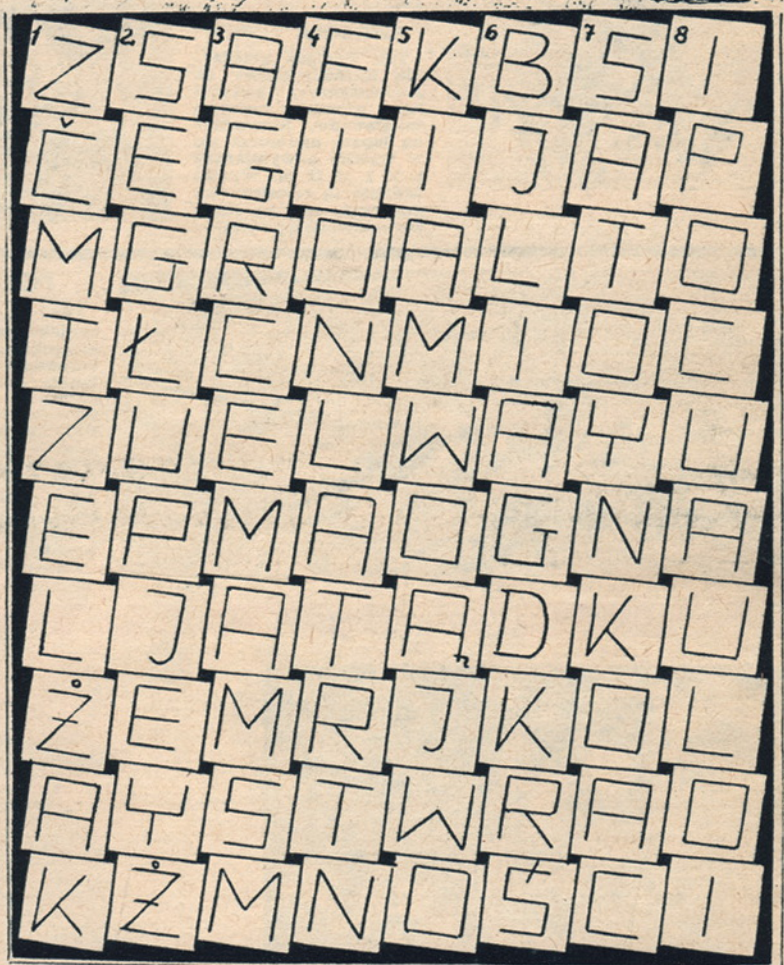 1 Z 2 S 3 A 4 F 5 K 6 B 7 S 8 I
Č E G I I J A P
M G R O A L T O
T Ł C N M I O C
Z U E L W A Y U
E P M A O G N A
L J A T Ą D K U
Ż E M R J K O L
A Y S T W R A O
K Ż M N O Ś C I